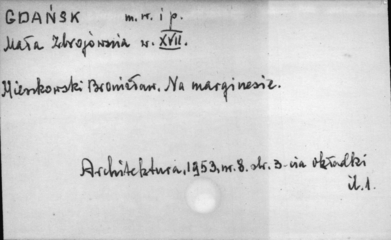 GDAŃSK m. w. i p.
Mała Zbrojownia w. XVII.
Mieszkowski Bronisław. Na marginesie.
Architektura, 1953, nr. 8. str. 3-cia okładki
il. 1.